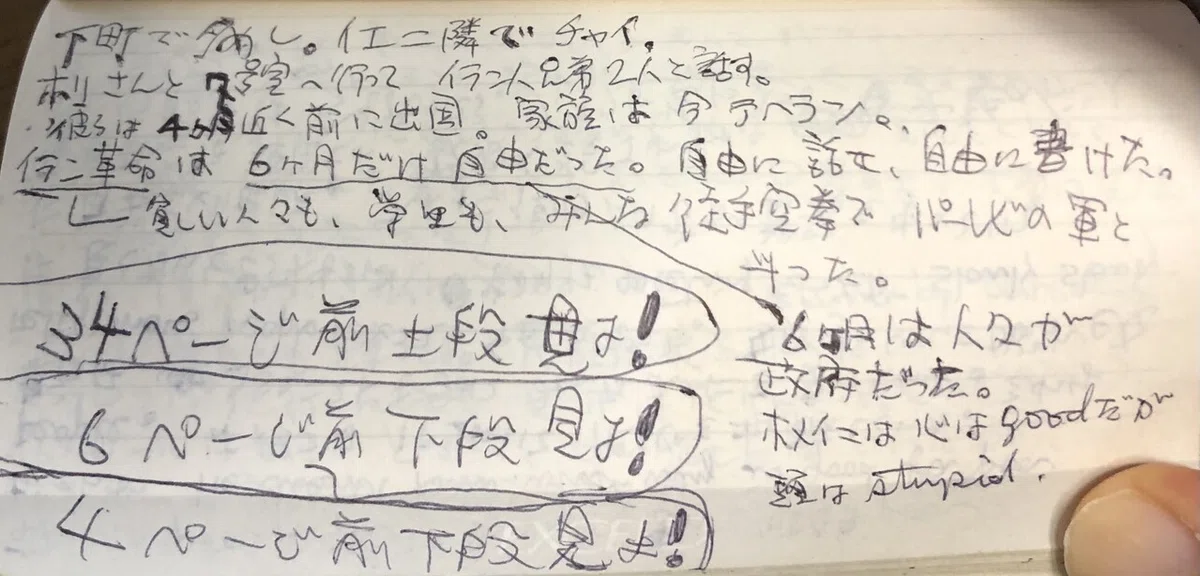 下町で夕めし。イエニ隣でチャイ。
ホリさんと7号室へ行って イラン人兄弟2人と話す。
彼らは4ヶ月近く前に出国。家族は今テヘラン。
イラン革命は6ヶ月だけ自由だった。自由に話せ、自由に書けた。
貧しい人々も、学生も、みんな徒手空拳でパーレビの軍と
斗った。
34ページ前上段見よ!
6ページ前下段見よ!
4ページ前下段見よ!
6ヶ月は人々が
政府だった。
ホメイニは心はgoodだが
頭はstupid.